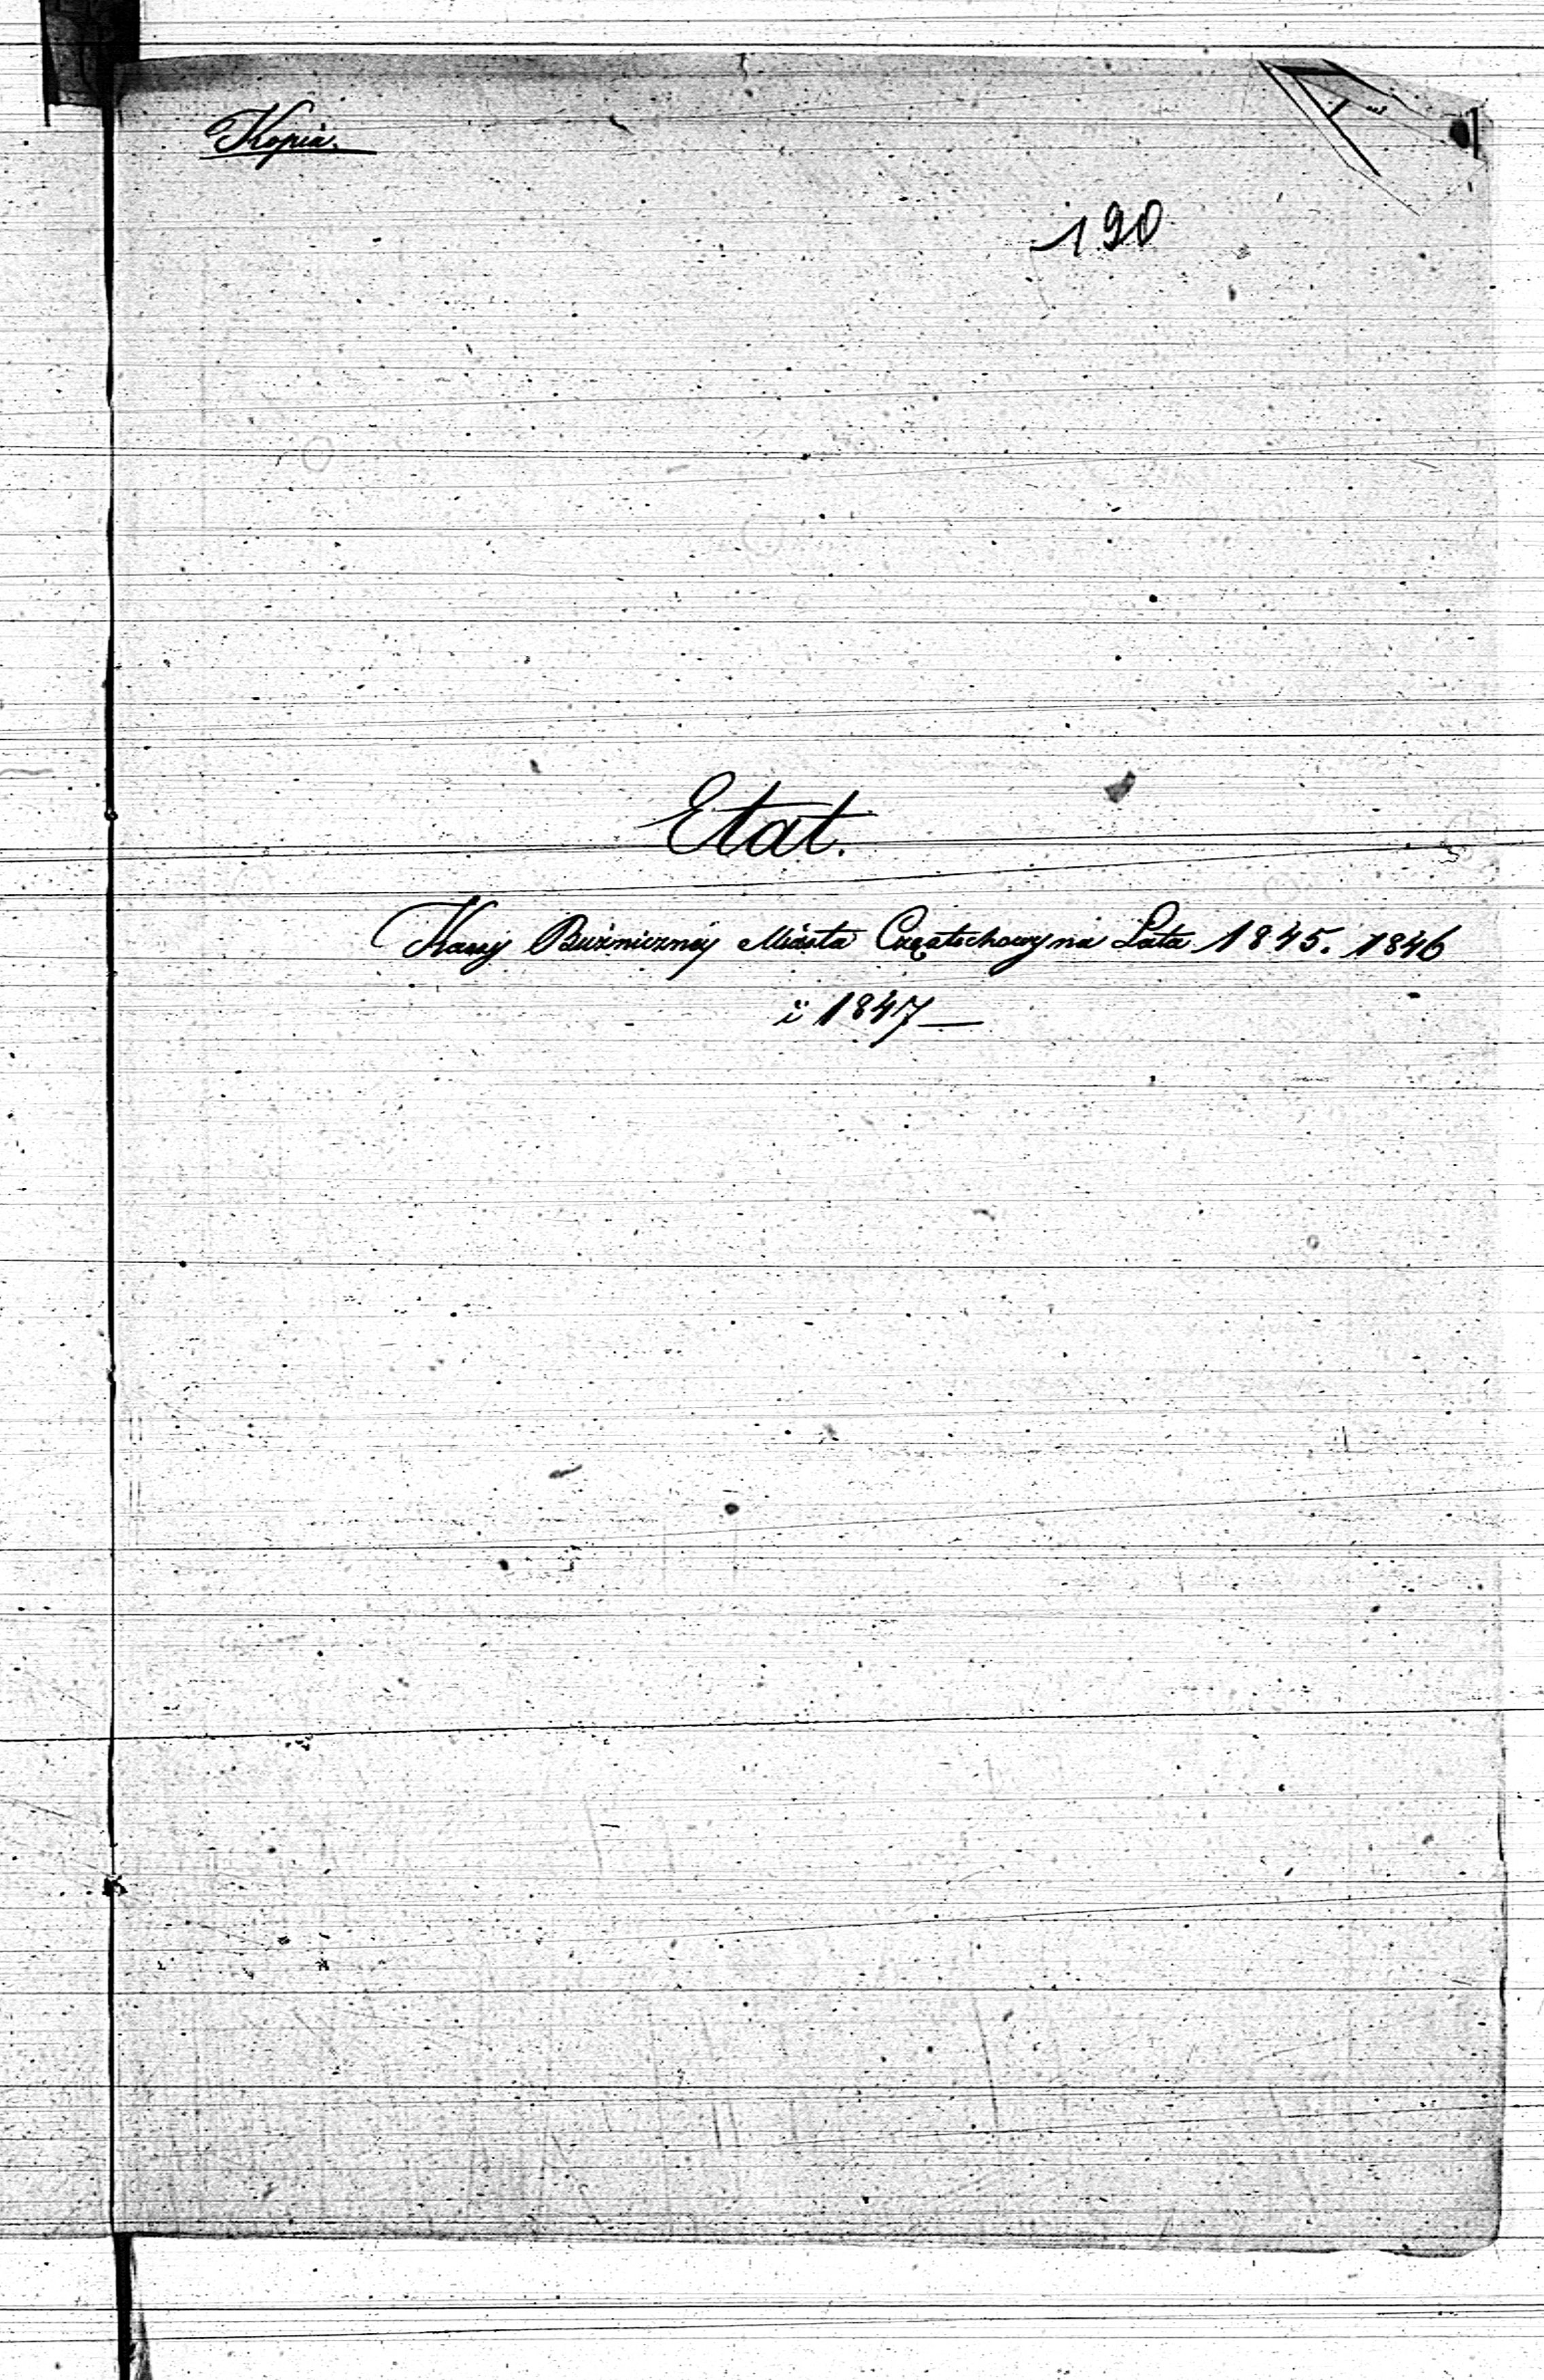 Kopia.
190
Etat.
Kassy Bużniczney Miasta Częstochowy na Lata 1845. 1846
i 1847 —